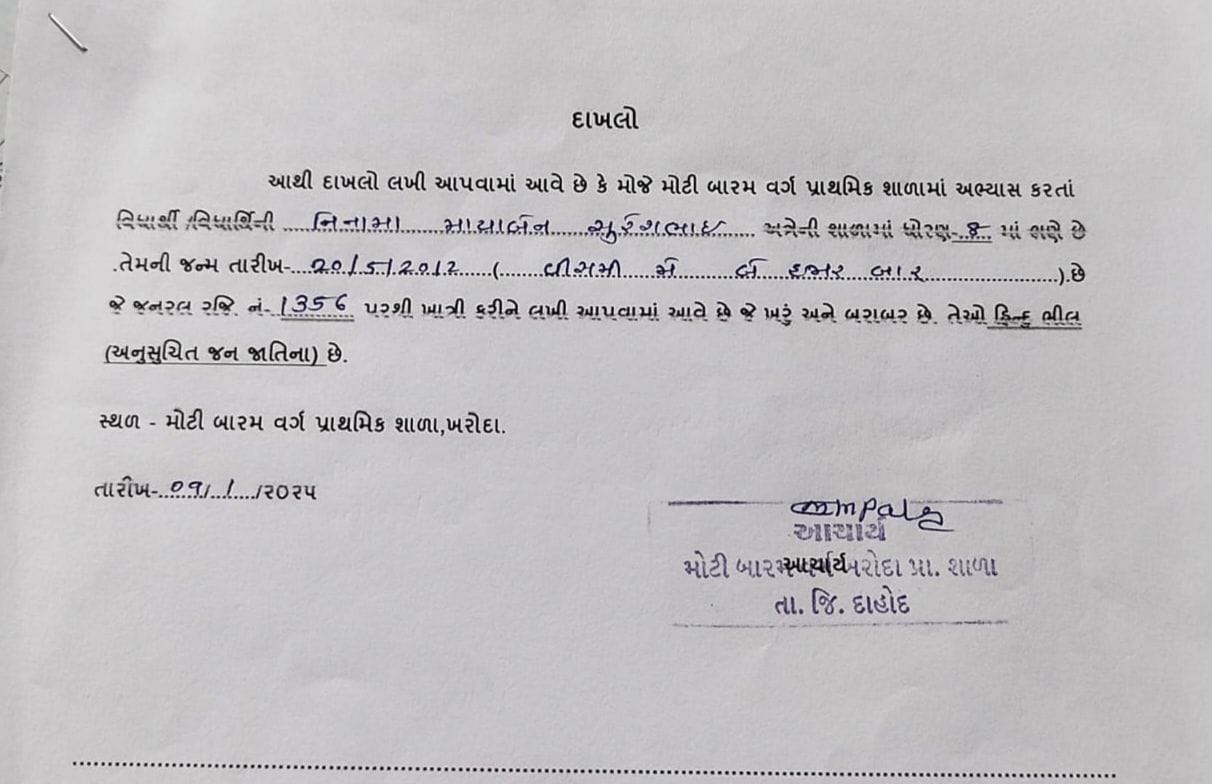 દાખલો
આથી દાખલો લખી આપવામાં આવે છે કે મોજે મોટી બારમ વર્ગ પ્રાથમિક શાળામાં અભ્યાસ કરતાં
વિધાર્થી /વિધાર્થિની ......નિનામા......માયાબેન......સુરેશભાઇ...... અત્રેની શાળામાં ધોરણ-..8.. માં ભણે છે
.તેમની જન્મ તારીખ-..20/5/2012....(......વીસમી....મે......બે હજાર બાર......................).છે
જે જનરલ રજિ. નં- 1356 પરથી ખાત્રી કરીને લખી આપવામાં આવે છે જે ખરું અને બરાબર છે. તેઓ હિન્દુ ભીલ
(અનુસુચિત જન જાતિના) છે.
સ્થળ - મોટી બારમ વર્ગ પ્રાથમિક શાળા,ખરોદા.
તારીખ-..09/..1.../૨૦૨૫
આચાર્ય
મોટી બારમ આચાર્ય ખરોદા પ્રા. શાળા
તા. જિ. દાહોદ